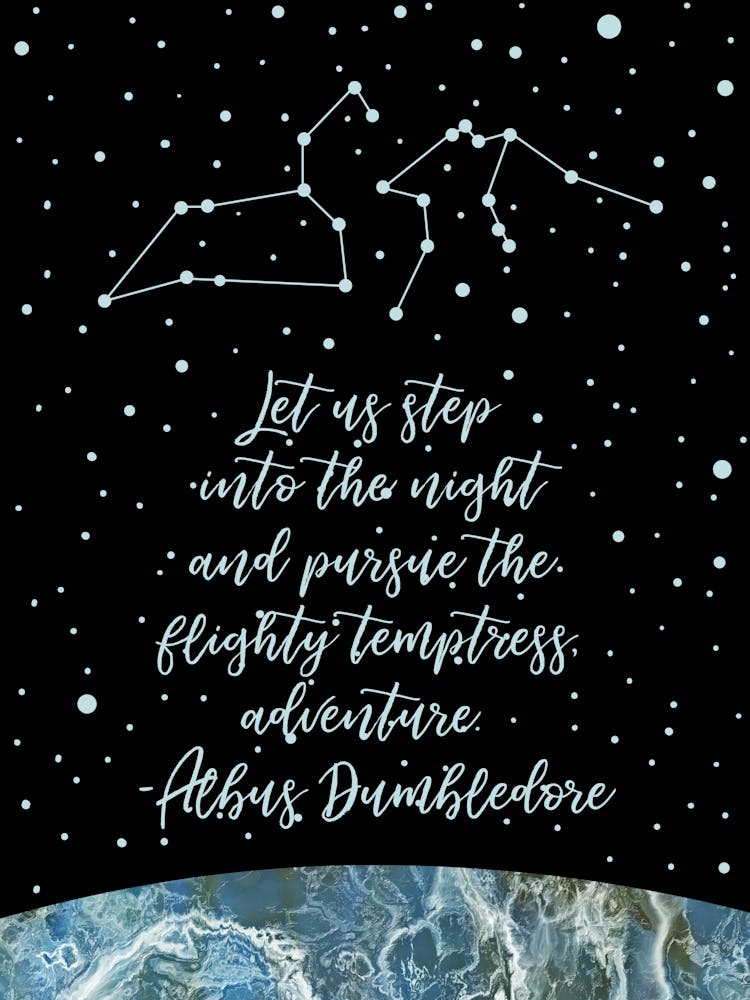 Let us step
into the night
and pursue the
flighty temptress,
adventure.
-Albus Dumbledore